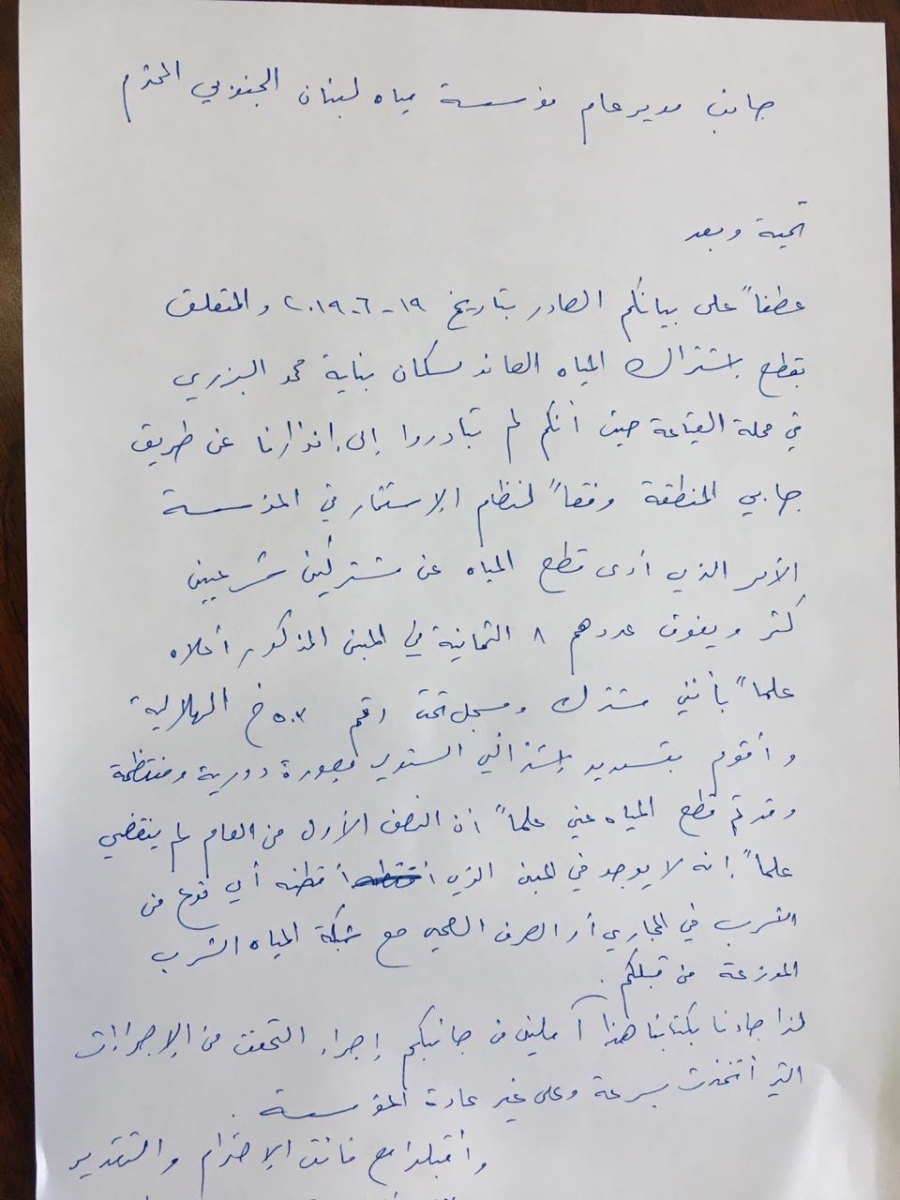 جانب مدير عام مؤسسة مياه لبنان الجنوبي المحترم
تحية وبعد
عطفاً على بيانكم الصادر بتاريخ ١٩-٦-٢٠١٩ والمتعلق
بقطع إشتراك المياه العائد لسكان بناية محمد البزري
في محلة القياعة حيث أنكم لم تبادروا إلى إنذارنا عن طريق
جابي المنطقة وفقاً لنظام الإستثمار في المؤسسة
الأمر الذي أدى قطع المياه عن مشتركين شرعيين
كثر ويفوق عددهم ٨ الثمانية في المبنى المذكور أعلاه
علماً بأنني مشترك ومسجل تحت رقم خ الهلالية
و أقوم بتسديد إشتراكي السنوي بصورة دورية ومنتظمة
وقد تم قطع المياه عني علماً أن النصف الأول من العام لم ينقضي
علماً إنه لا يوجد في المبنى الذي أقطنه أي نوع من
التسرب في المجاري أو الصرف الصحي مع شبكة المياه الشرب
الموزعة من قبلكم.
لذا جاءنا بكتابنا هذا آملين من جانبكم إجراء التحقق من الإجراءات
التي أتخذت بسرعة وعلى غير عادة المؤسسة.
وأقبلوا مع فائق الإحترام والتقدير